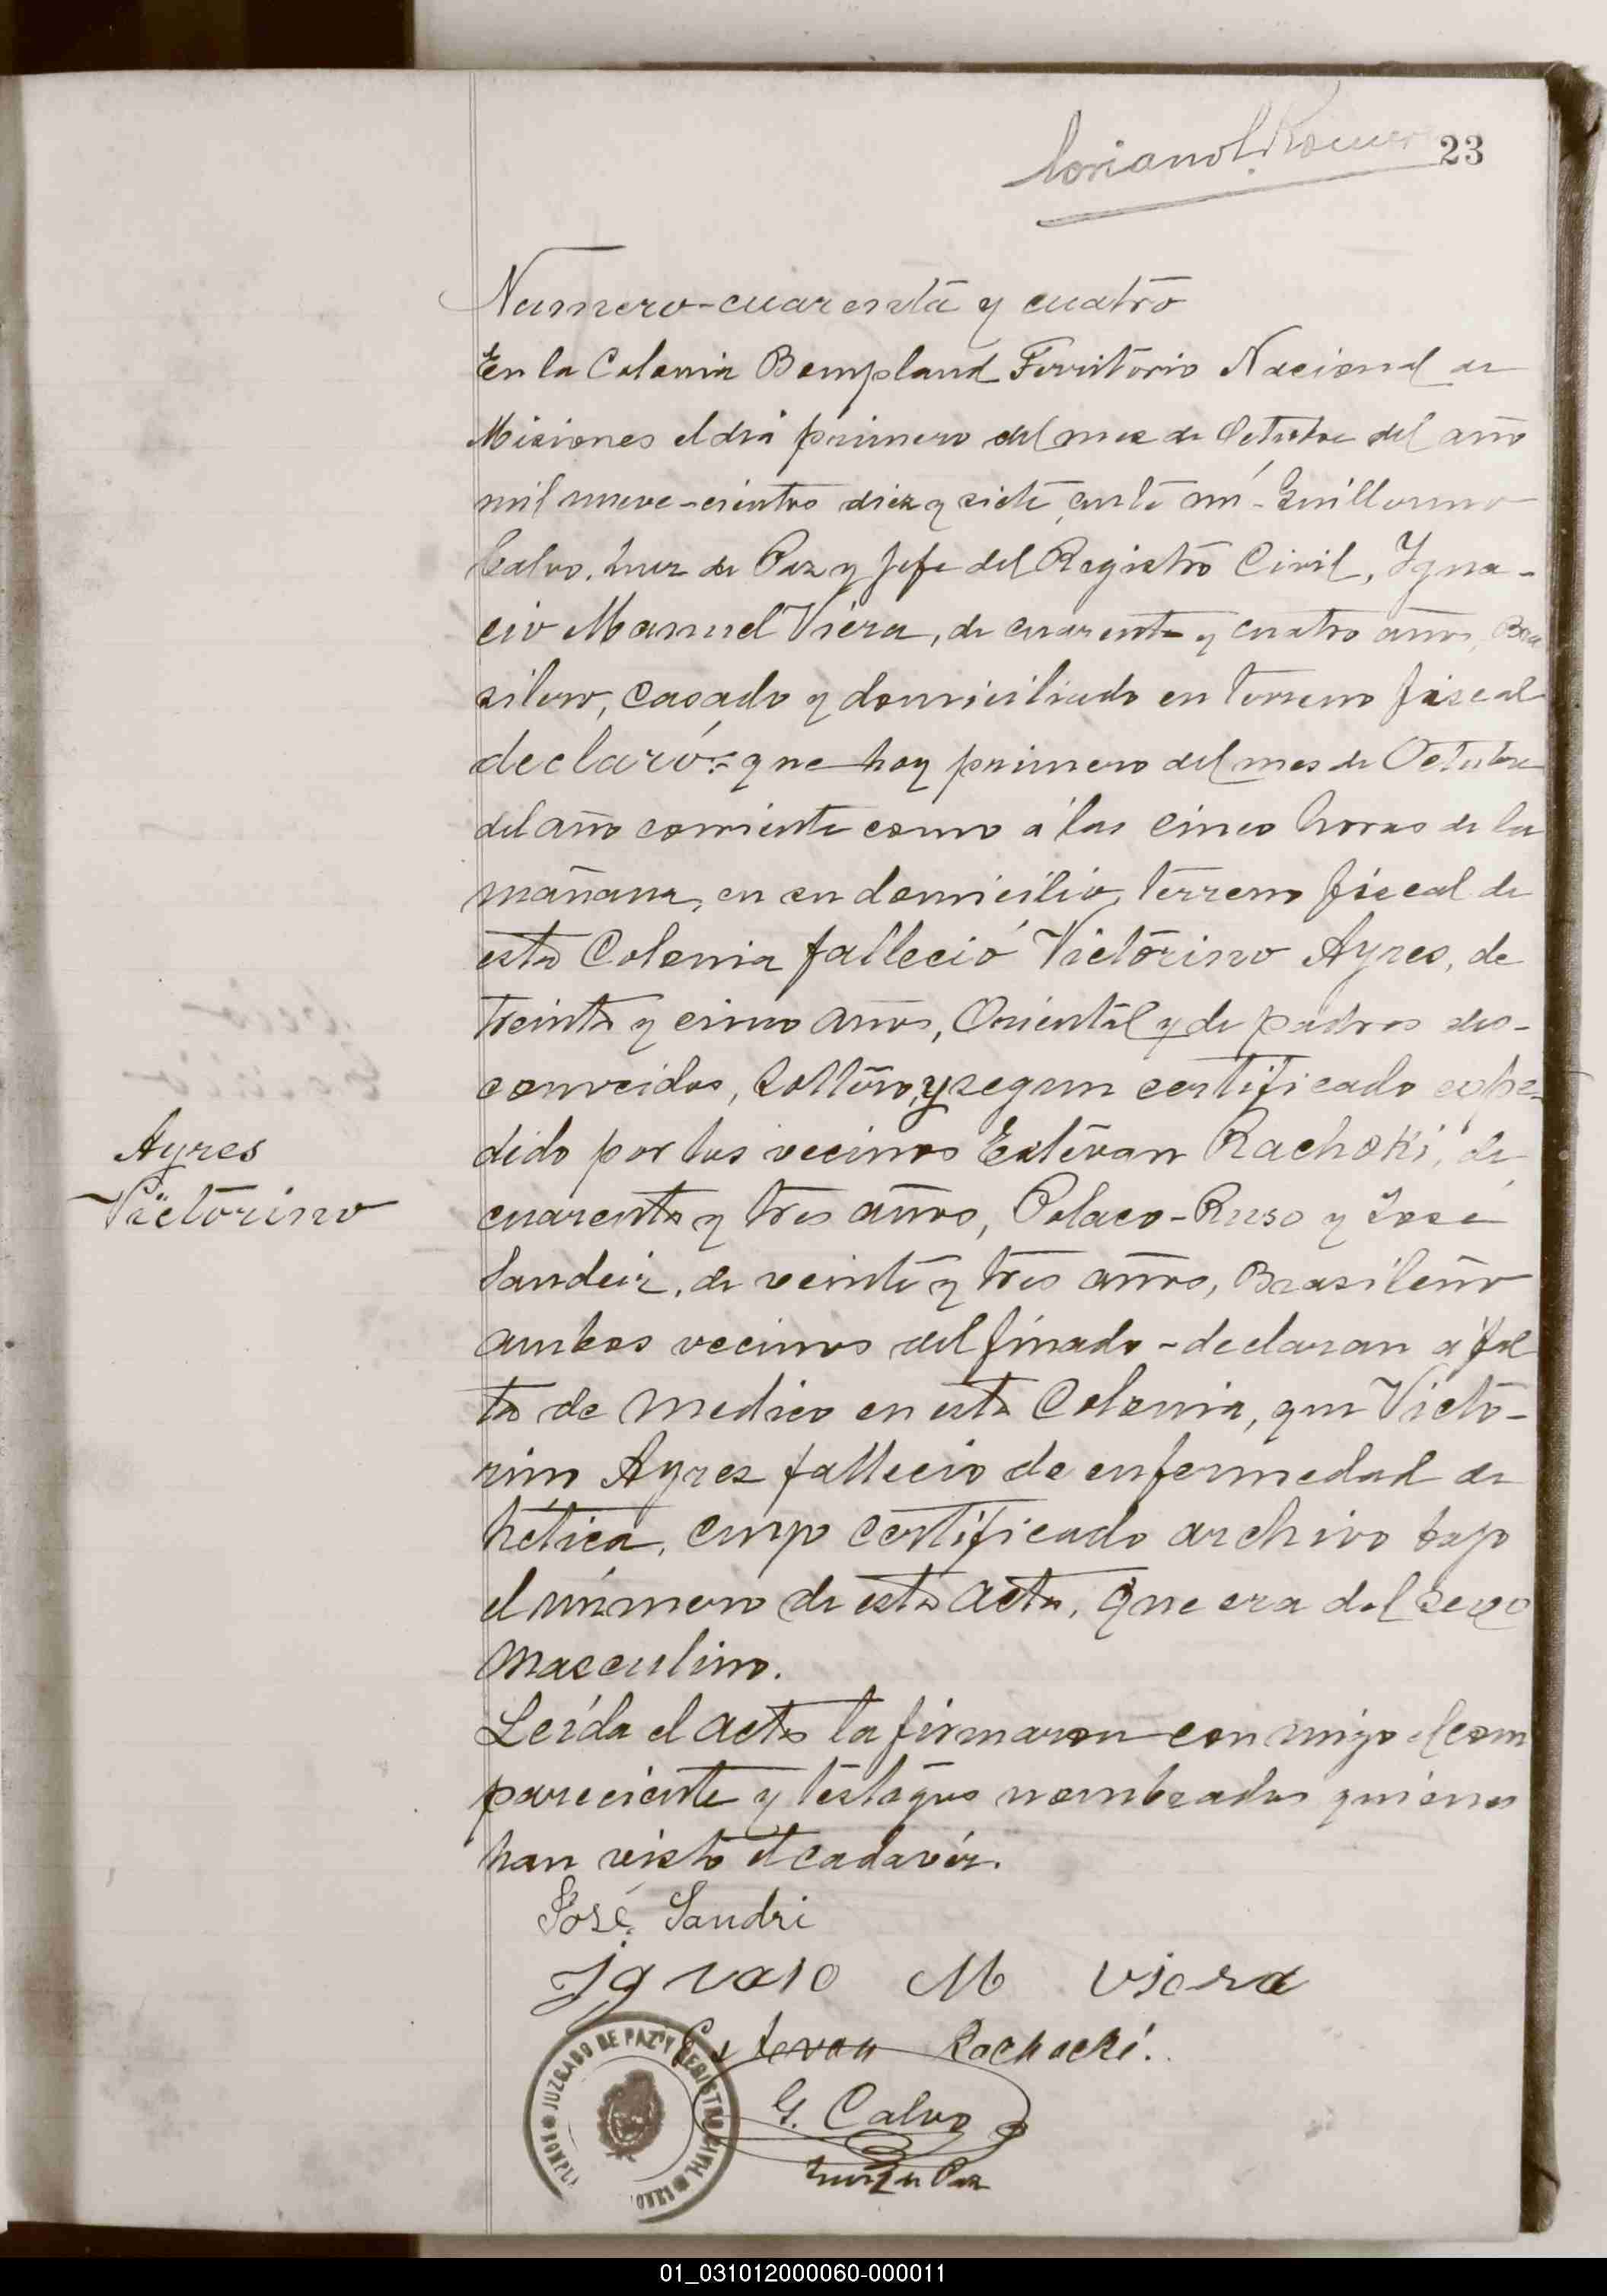 23
Numero-cuarenta y cuatro
En la Colonia Bompland Territorio Nacional de
Misiones el dia primero del mes de Octubre del año
mil nueve-cientos diez y siete, ante mí-Guillermo
Calvo, Juez de Paz y Jefe del Registro Civil, Ygna-
cio Manuel Viera, de cuarenta y cuatro años, Bra
silero, casado y domiciliado en terreno fiscal
declaró:-que hoy primero del mes de Octubre
del año corriente como á las cinco horas de la
mañana, en su domicilio, terreno fiscal de
esta Colonia falleció Victorino Ayres, de
treinta y cinco años, Oriental y de padres des-
conocidos, soltero, y segun certificado espe-
dido por los vecinos Estevan Rachoki, de
Ayres
Victorino
cuarenta y tres años, Polaco-Ruso y José
Sandeir, de veinte y tres años, Brasileño
ambos vecinos del finado-declaran á fal
ta de medico en esta Colonia, que Victo-
rino Ayres fallecio de enfermedad de
hética, cuyo certificado archivo bajo
el número de esta acta, que era del sexo
masculino.
Leída el acta la firmaron con migo el com
pareciente y testigos nombrados quienes
han visto el cadavér.
José Sandri
Ignasio M Viera
Estevan Rachocki.
G. Calvo
Juez de Paz
JUZGADO DE PAZ Y REGISTRO CIVIL
01_031012000060-000011